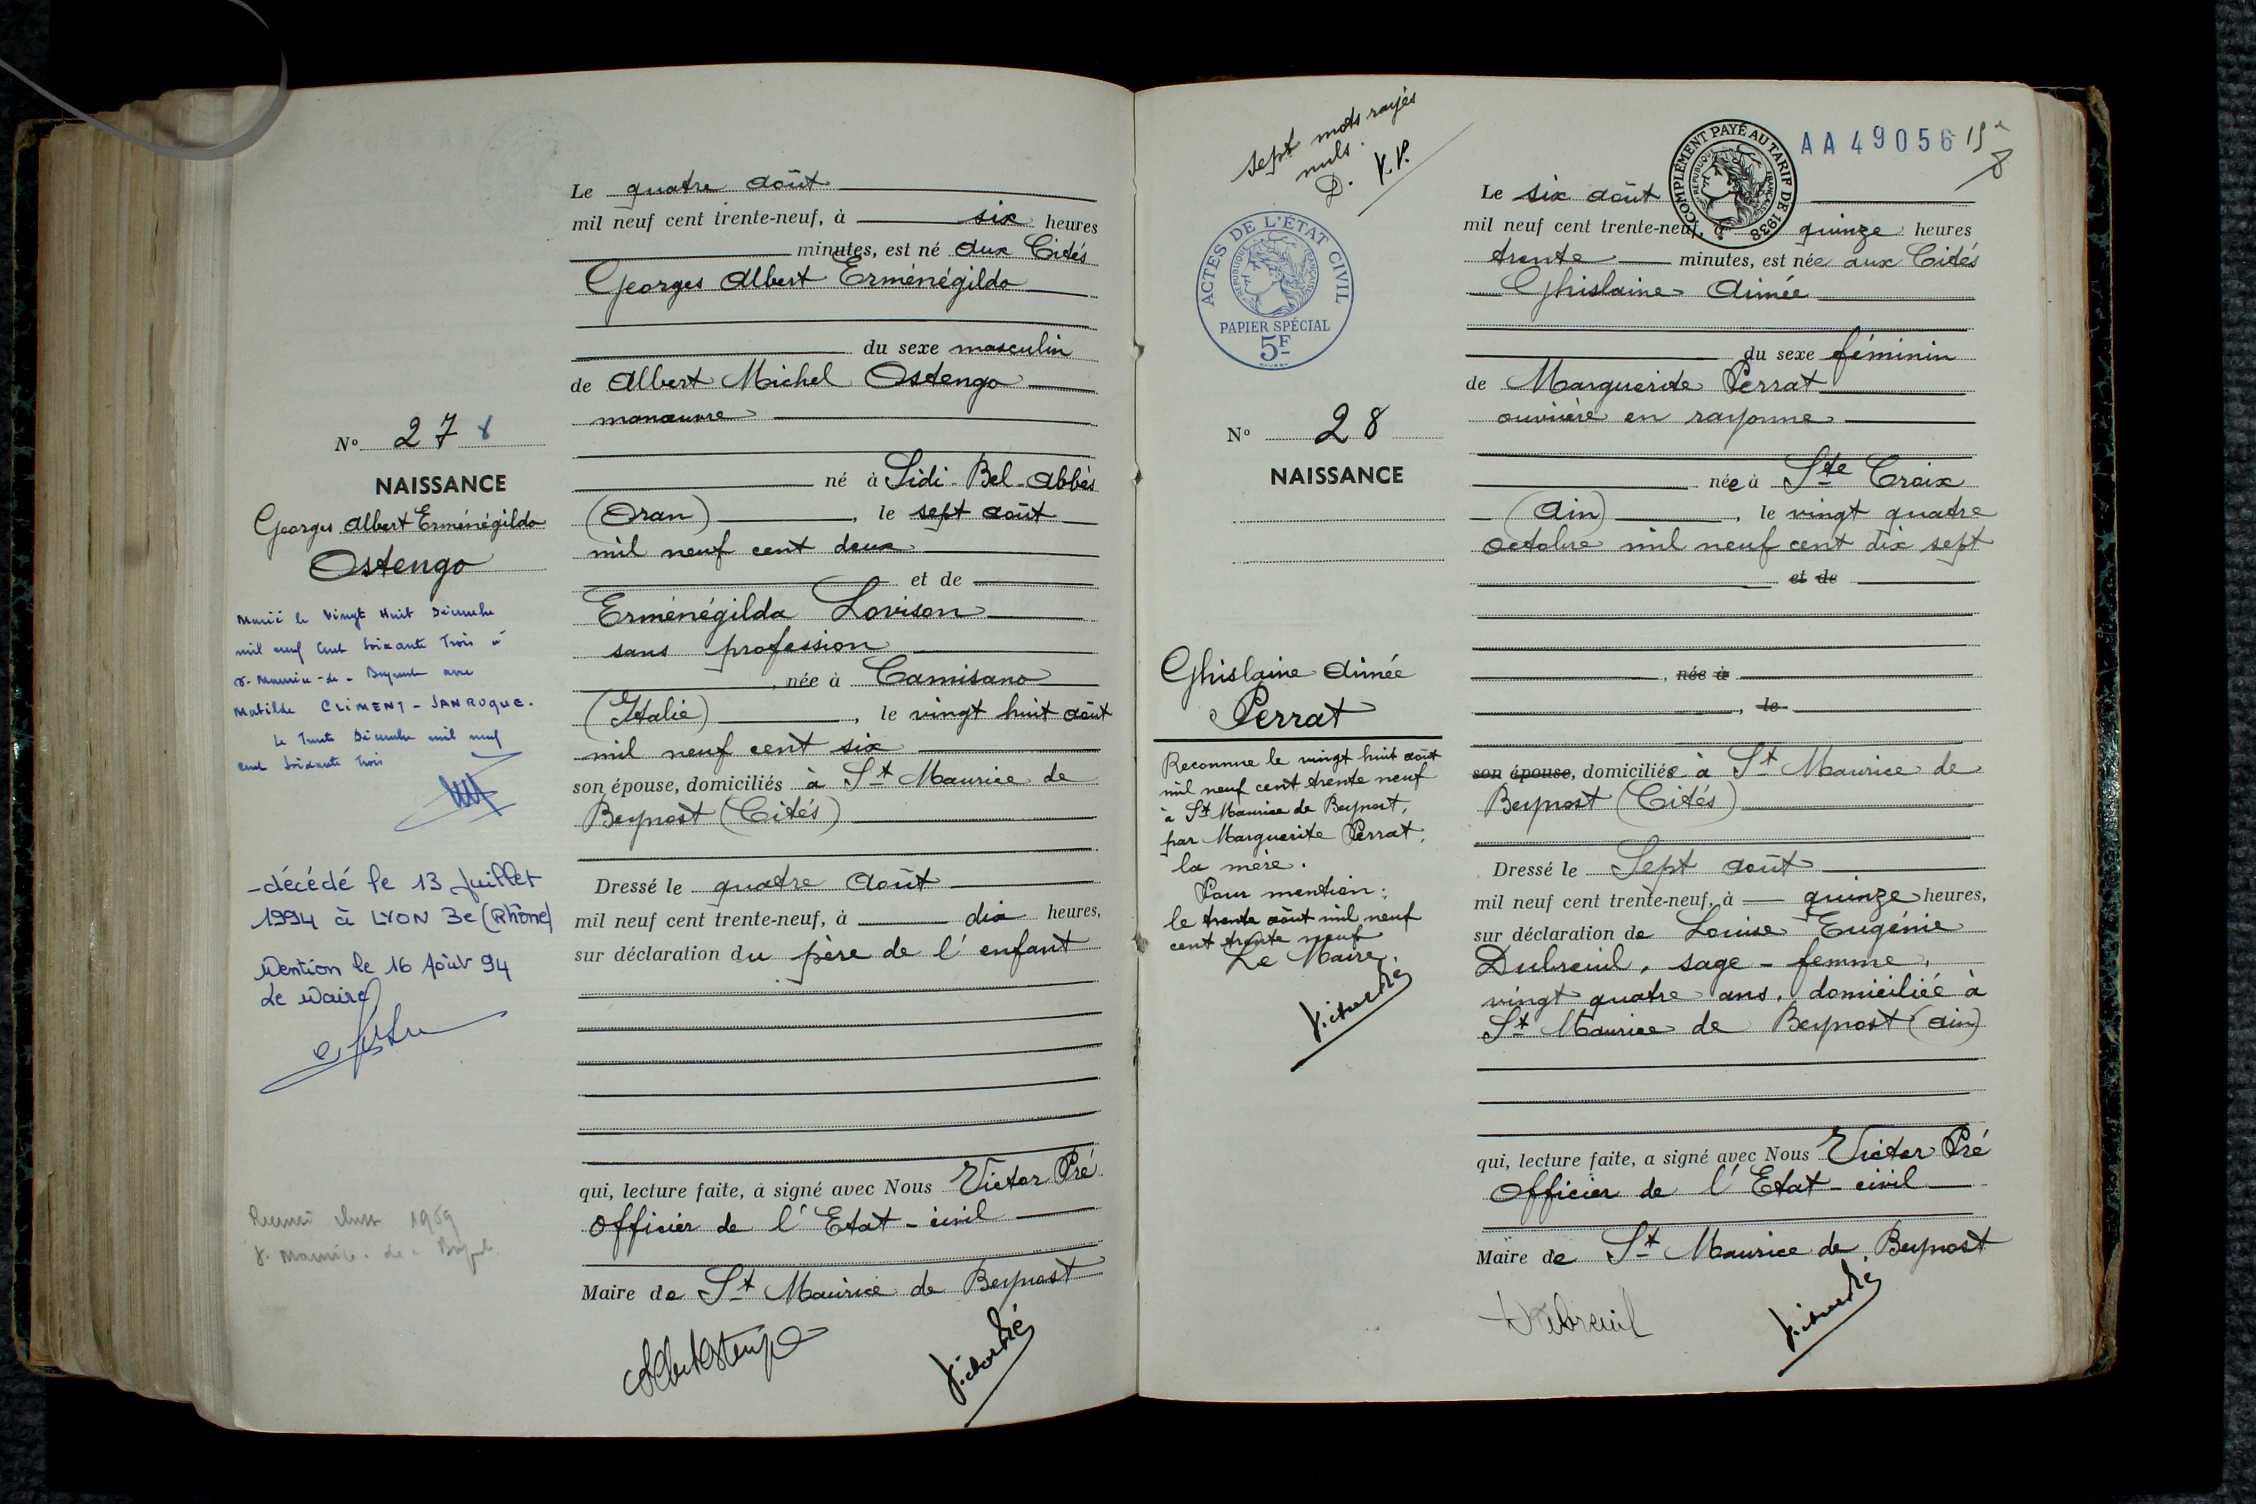 Le quatre août
mil neuf cent trente-neuf, à six heures
minutes, est né aux Cités
Georges Albert Erménégildo
du sexe masculin
de Albert Michel Ostengo
manœuvre
né à Sidi-Bel-Abbès
(Oran), le sept août
mil neuf cent deux
et de
Erménégilda Lovison
sans profession
, née à Camisano
(Italie), le vingt huit août
mil neuf cent six
son épouse, domiciliés à St Maurice de
Beynost (Cités)
Dressé le quatre août
mil neuf cent trente-neuf, à dix heures,
sur déclaration du père de l'enfant
qui, lecture faite, a signé avec Nous Victor Pré
Officier de l'Etat-civil
Maire de St Maurice de Beynost
Victor Pré
No 27
NAISSANCE
Georges Albert Erménégildo
Ostengo
Marié le vingt huit Décembre
mil neuf cent soixante trois à
St-Maurice-de-Beynost avec
Matilde CLIMENT-SANROQUE.
Le trente Décembre mil neuf
cent soixante trois
-décédé le 13 juillet
1994 à LYON 3e (Rhône)
Mention le 16 Août 94
Le Maire
1969
St Maurice-de-Beynost
sept mots rayés
nuls.
D. V.P.
ACTES DE L'ÉTAT CIVIL
RÉPUBLIQUE FRANÇAISE
PAPIER SPÉCIAL
5F
No 28
NAISSANCE
Ghislaine Aimée
Perrat
Reconnue le vingt huit août
mil neuf cent trente neuf
à St Maurice de Beynost,
par Marguerite Perrat,
la mère.
Pour mention:
le trente août mil neuf
cent trente neuf
Le Maire,
Victor Pré
COMPLÉMENT PAYÉ AU TARIF DE 1938
RÉPUBLIQUE FRANÇAISE
AA 49056
Le six août
mil neuf cent trente-neuf, à quinze heures
trente minutes, est née aux Cités
Ghislaine Aimée
du sexe féminin
de Marguerite Perrat
ouvrière en rayonne
née à Ste Croix
(Ain), le vingt quatre
Octobre mil neuf cent dix sept
et de
, née à
, le
son épouse, domiciliée à St Maurice de
Beynost (Cités)
Dressé le Sept août
mil neuf cent trente-neuf, à quinze heures,
sur déclaration de Louise Eugénie
Dubreuil, sage-femme,
vingt quatre ans, domiciliée à
St Maurice de Beynost (Ain)
qui, lecture faite, a signé avec Nous Victor Pré
Officier de l'Etat-civil
Maire de St Maurice de Beynost
Dubreuil
Victor Pré